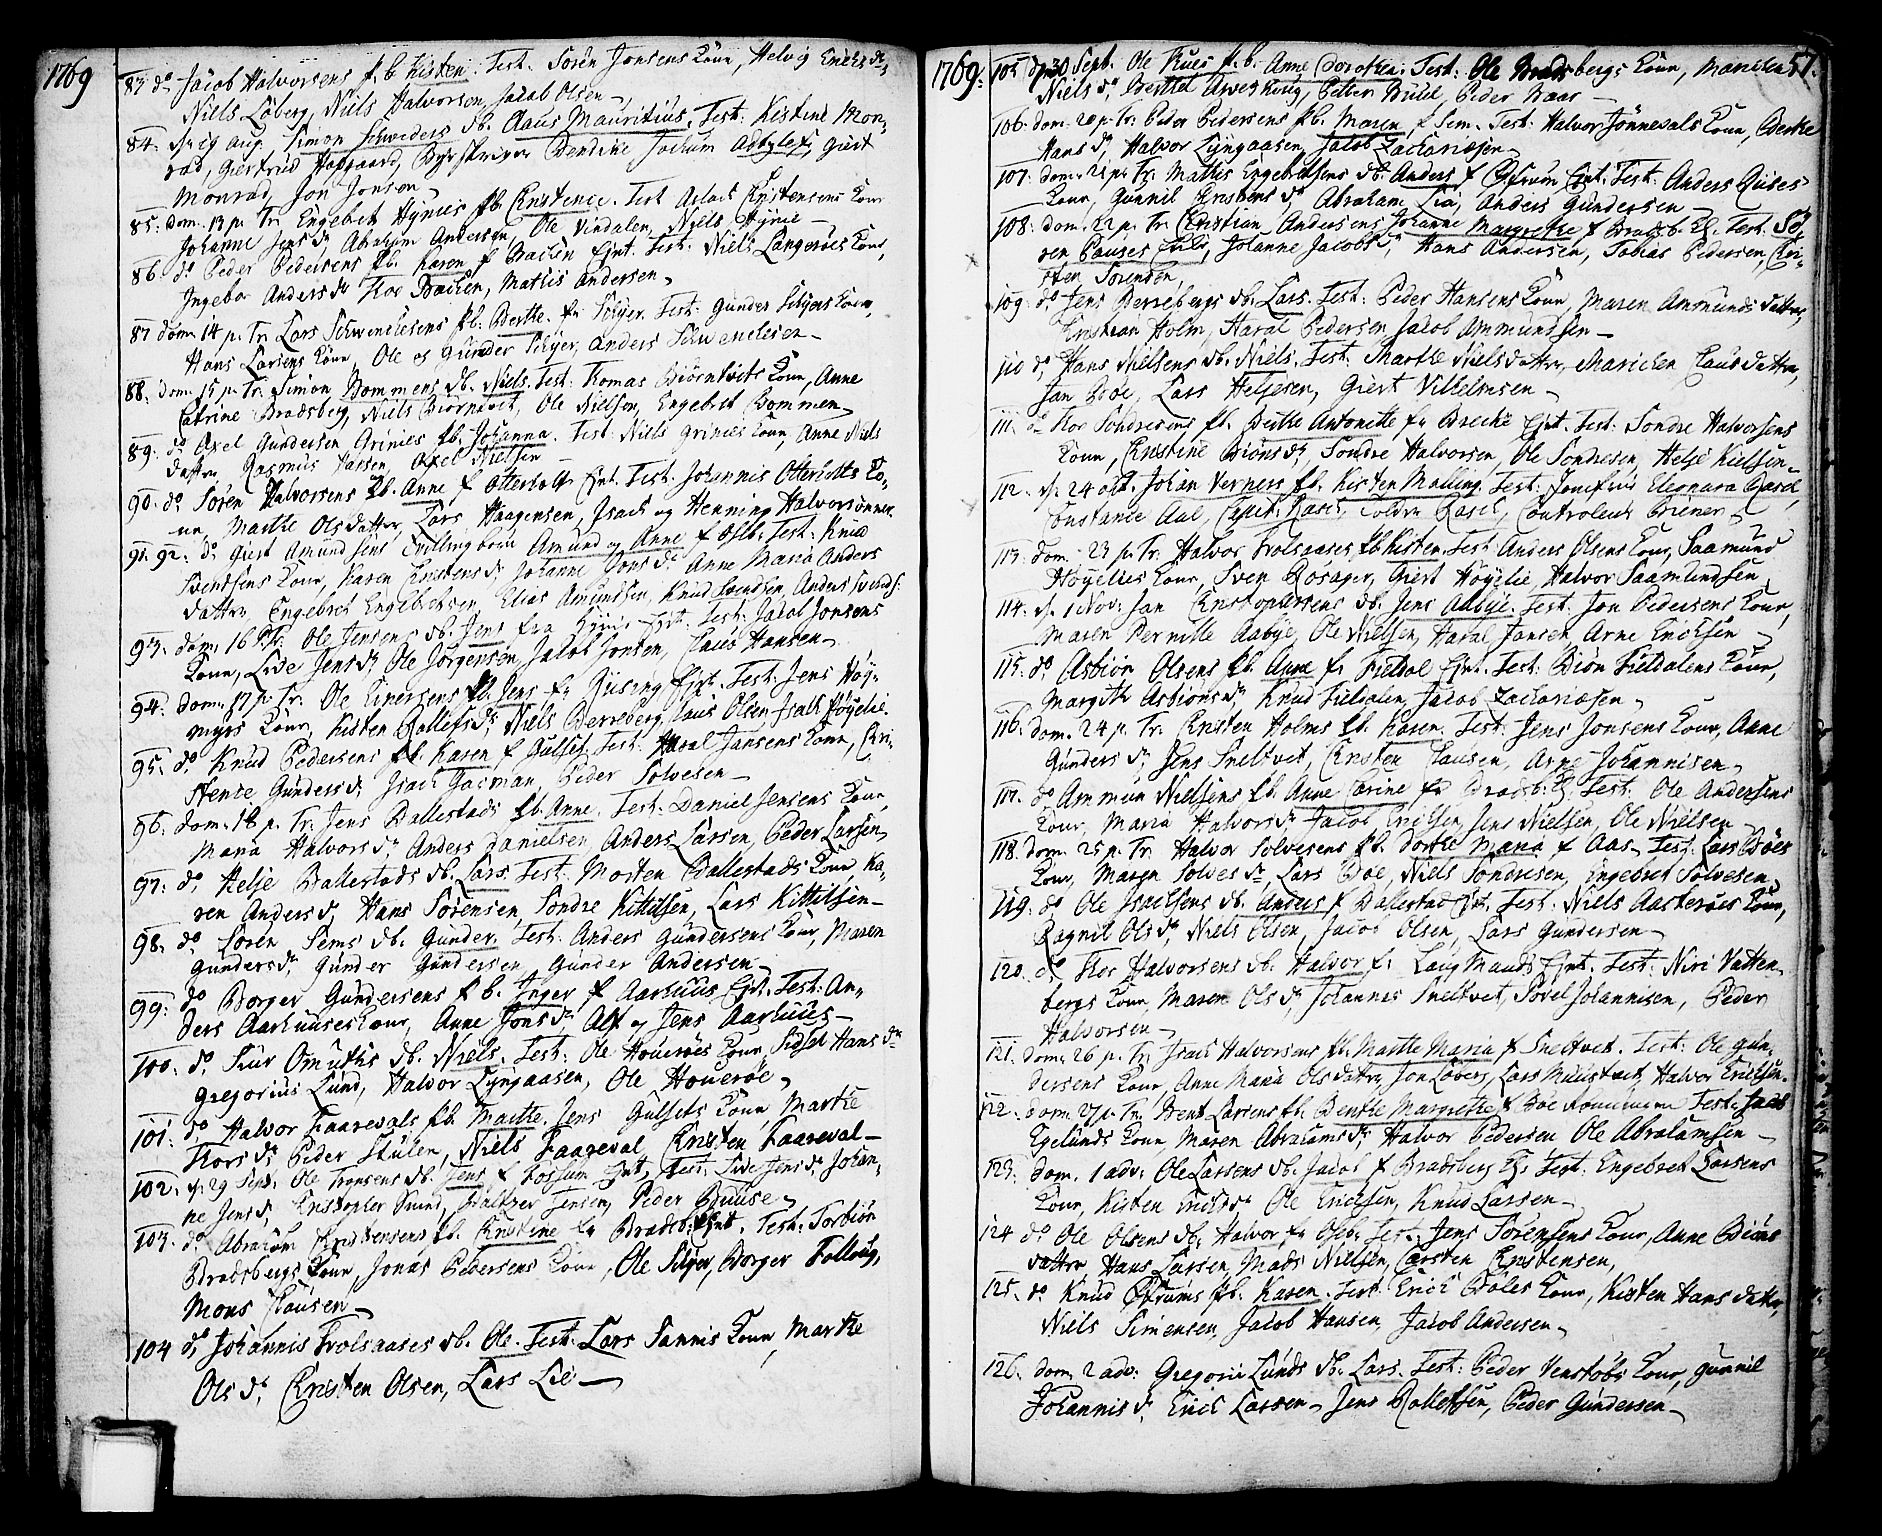 1769
83 do Jacob Halvorsens pb. Kisten. Test. Sören Jonsens Konn, Helvig Erichs dr,
Niels Löberg, Niels Halvorsen, Jacob Olsen
84. d. 19 Aug. Simon Schweders db. Claus Mauritius. Test: Kistine Mon-
rad, Giertrud Hofgaard, Byeskriver Bendeke Jochum Adbyle, Giert
Monrad, Jon Jonsen
85: dom. 13 p. Tr. Engebret Hynies pb. Cristence. Test Aslach Cristensens Konn
Johanne Jens dr, Abraham Andersen, Ole Vindalen, Niels Hynie
86. do Peder Pedersens pb. Karen f Bachen Ejnt. Test: Niels Langeröes Konn,
Ingebor Anders dr Thor Bachen, Mathis Andersen
87 dom. 14 p. Tr. Lars Schwenchesens pb: Berthe. fr Schyer. Test: Gunder Schyers Konn,
Hans Larsens Konn, Ole og Gunder Schyer, Anders Schwenchesen
88: dom. 15 p. Tr. Simon Bommens db. Niels. Test: Thomas Biörntvets Konn, Anne
Catrine Bradsberg, Niels Biörntvet, Ole Nielsen, Engebret Bommen
89: do Axel Gundersen Grinies pb. Johanna. Test: Niels Grinies Konn, Anne Niels
datter Rasmus Larsen, Axel Nielsen
90. do Sören Halvorsens pb. Anne f Otterholt Ejnt. Test. Johannis Otterholts Ko-
nn, Marthe Olsdatter, Lars Haagensen, Isach og Henning Halvorsönner
91. 92: do Giert Amundsens Tvillingborn Amund og Anne f Osb. Test: Knud
Svendsens Konn, Karen Cristens dr Johanne Jons dr Anne Maria Anders
datter Engebret Engebretsen, Elias Amundsen, Knud Svendsen, Anders Svends:
93: dom: 16 p. Tr. Ole Jensens db. Jens fra Ejnt. Test: Jacob Jonsens
Konn, Live Jens dr Ole Jörgensen, Jacob Jonsen, Claus Hansen
94. dom. 17 p. Tr. Ole Ejersens pb. Jens fr Riising Ejnt. Test: Jens Höy-
myrs Konn, Kisten Rollefs dr, Niels Berreberg, Claus Olsen, Isach Höyelie.
95: do Knud Pedersens pb. Karen f Gulset. Test: Haral Jansens Konn, Cri-
stence Gunders dr Isach Jacman, Peder Solvesen
96: dom: 18 p. Tr. Jens Ballestads pb. Anne. Test: Daniel Jensens Konn,
Maria Halvors dr Anders Danielsen, Anders Larsen, Peder Larsen,
97: do Helje Ballestads db. Lars. Test. Morten Ballestads Konn Ka-
ren Anders dr Hans Sörensen, Sondre Kittilsen, Lars Kittilsen
98. do Sören Sems db. Gunder. Test: Anders Gundersens Konn, Maren
Gunders dr Gunder Gundersen, Gunder Andersen
99: do Borger Gundersens pb. Inger f Aarhuus Ejnt. Test: An-
ders Aarhuuses Konn, Anne Jons dr Alf og Jens Aarhuus
100: do Siur Omuths db. Niels. Test: Ole Houeröes Konn, Sidsel Hans dr
Gregorius Lund, Halvor Lyngaasen, Ole Houeröe
101: do Halvor Faarevals pb. Marthe. Jens Gulsets Konn, Marthe
Thors dr Peder Stulen, Niels Faareval, Cristen Faareval
102: d. 29 Sept: Ole Tronsens db. Jens f Fossum Ejnt. Test: Live Jens dr Johan-
ne Jens dr, Cristopher Svend, Baltzer Jensen, Peder Buuse
103. do Abraham Cristensens pb. Cristine fr Bradsb. Ejnt. Test. Torbiön
Bradsbergs Konn, Jonas Pedersens Konn, Ole Schyer, Borger Follaug,
Mons Clausen
104 do Johannis Trolsaases db. Ole. Test. Lars Tannis Konn, Marthe
Ols dr, Cristen Olsen, Lars Lie
1769. 57.
105 d. 30 Sept. Ole Kues pb. Anne Dorothea. Test: Ole Bradsbergs Konn, Marichen
Niels dr Berthel Arveskoug, Petter Budd, Peder Baar
106. dom. 20 p. Tr. Peder Pedersens pb. Maren f Sem. Test: Halvor Jönnevals Konn, Berthe
Hans dr Halvor Lyngaasen, Jacob Zachariasen
107: dom. 21 p. Tr. Mathis Engebretsens db. Anders f Ejnt. Test: Anders Riises
Konn, Gunnil Cristens dr Abraham Lia, Anders Gundersen
108: dom. 22 p. Tr. Cristian Andersens Johanne Margrethe f Bradsb. Ej. Test. Sö-
ren Pauses Enke, Johanne Jacobs dr, Hans Andersen, Tobias Pedersen, Chri-
sten Sörensen
109: do Jens Berrebergs db. Lars. Test: Peder Hansens Konn, Maren Ammunds datter,
Cristian Holm, Haral Pedersen, Jacob Ammundsen
110 do Hans Nielsens db. Niels. Test. Marthe Nielsdatter Marichen Claus datter,
Jan Böe, Lars Heljesen, Giert Vilhelmsen
111. do Thor Sondresens pb. Berthe Antonette fr Breche Ejnt. Test: Sondre Halvorsens
Konn, Cristine Biöns dr, Sondre Halvorsen, Ole Sondresen, Helje Kielsen
112. d. 24 oct. Johan Verners pb. Kirsten Malling. Test: Jomfrue Eleonora Rasch,
Constance Aal, Capit. Rasch, Tolder Rasch, Controleur Briener
113: dom. 23 p. Tr. Halvor Trolsaases pb. Kisten. Test. Anders Olsens Konn, Saamund
Höyelies Konn, Sven Rosager, Giert Höyelie, Halvor Saamundsen
114. d. 1 Nov: Jan Cristophersens db. Jens Aabye. Test: Jon Pedersens Konn,
Maren Pernille Aabye, Ole Nielsen, Haral Jansen, Arne Erichsen
115: do Asbiön Olsens pb. Anne fr Fieldal Ejnt. Test: Biön Fieldalens Konn,
Margith Asbiöns dr, Knud Fieldalen, Jacob Zachariasen
116: dom. 24 p. Tr. Cristen Holms pb. Karen. Test: Jens Jonsens Konn, Anne
Gunders dr, Jens Sneltvet, Cristen Clausen, Arne Johannisen
117. do Ammun Nielsens pb. Anne Carine fr Bradsb. Ej. Test. Ole Andersens
Konn, Maria Halvors dr, Jacob Erichsen, Jens Nielsen, Ole Nielsen
118. dom. 25 p. Tr. Halvor Solvesens pb. Dorthe Maria f Aas. Test: Lars Böes
Konn, Maren Solves dr, Lars Böe, Niels Sondresen, Engebret Solvesen,
119. do Ole Isachsens db. Anders f Ballestad Ejnt. Test. Niels Aasteröes Konn,
Ragnil Ols dr, Niels Olsen, Jacob Olsen, Lars Gundersen
120. do Thor Halvorsens db. Halvor fr Laugmands Ejnt. Test: Niri Vatten-
bergs Konn, Maren Ols dr, Johannes Sneltvet, Povel Johannisen, Peder
Halvorsen
121. dom. 26 p. Tr. Isach Halvorsens pb. Marthe Maria f Sneltvet. Test: Ole Gun-
dersens Konn, Anne Maria Olsdatter, Jon Löberg, Lars Muustvet, Halvor Erichsen.
122. dom. 27 p. Tr. Brent Larsens pb. Benthe Margrethe f Böe Test. Jacob
Egelunds Konn, Maren Abrahams dr Halvor Pedersen Ole Abrahamsen
123. dom. 1 adv: Ole Larsens db. Jacob f Bradsberg Ej. Test. Engebret Larsens
Konn, Kisten Erichs dr Ole Erichsen, Knud Larsen
124 do Ole Olsens db. Halvor fr Osb. Test: Jens Sörensens Konn, Anne Biöns
datter Hans Larsen, Mads Nielsen, Carsten Cristensen,
125. do Knud Öfrums pb. Karen. Test. Erich Böles Konn, Kisten Hans datter,
Niels Simensen, Jacob Hansen, Jacob Andersen
126. dom. 2 adv: Gregorii Lunds db. Lars. Test: Peder Venstöbs Konn, Gunnil
Johannis dr, Erich Larsen, Jens Rollefsen, Peder Gundersen